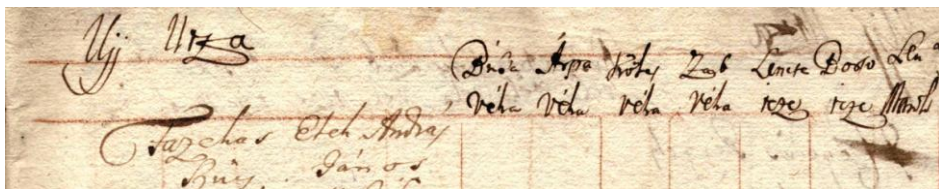 Uÿ Utza
Búza Árpa Köles Zab Lencse Borso Len
Véka Véka Véka Véka icze icze
Elek András
János